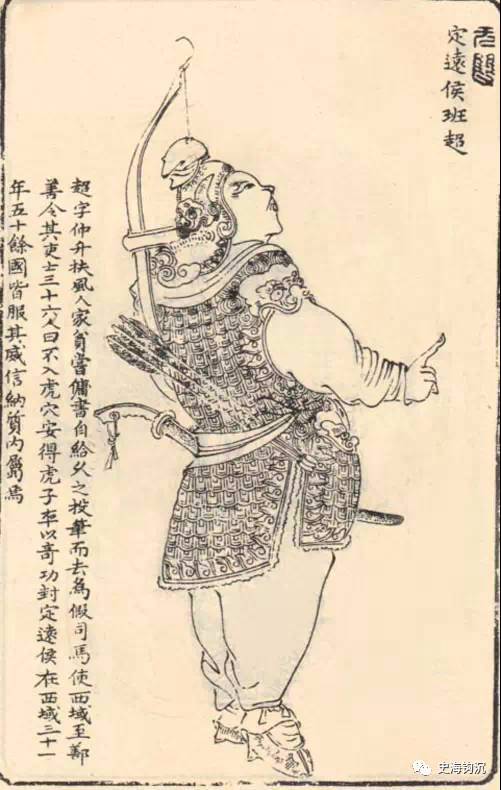 定遠侯班超
超字仲升扶風人家貧嘗傭書自給久之投筆而去為假司馬使西域至鄯
善令其吏士三十六人曰不入虎穴安得虎子卒以奇功封定遠侯在西域三十一
年五十餘國皆服其威信納質內屬焉
史海钩沉